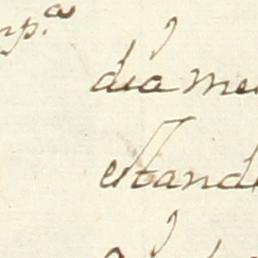 mp.as
dia me
estand